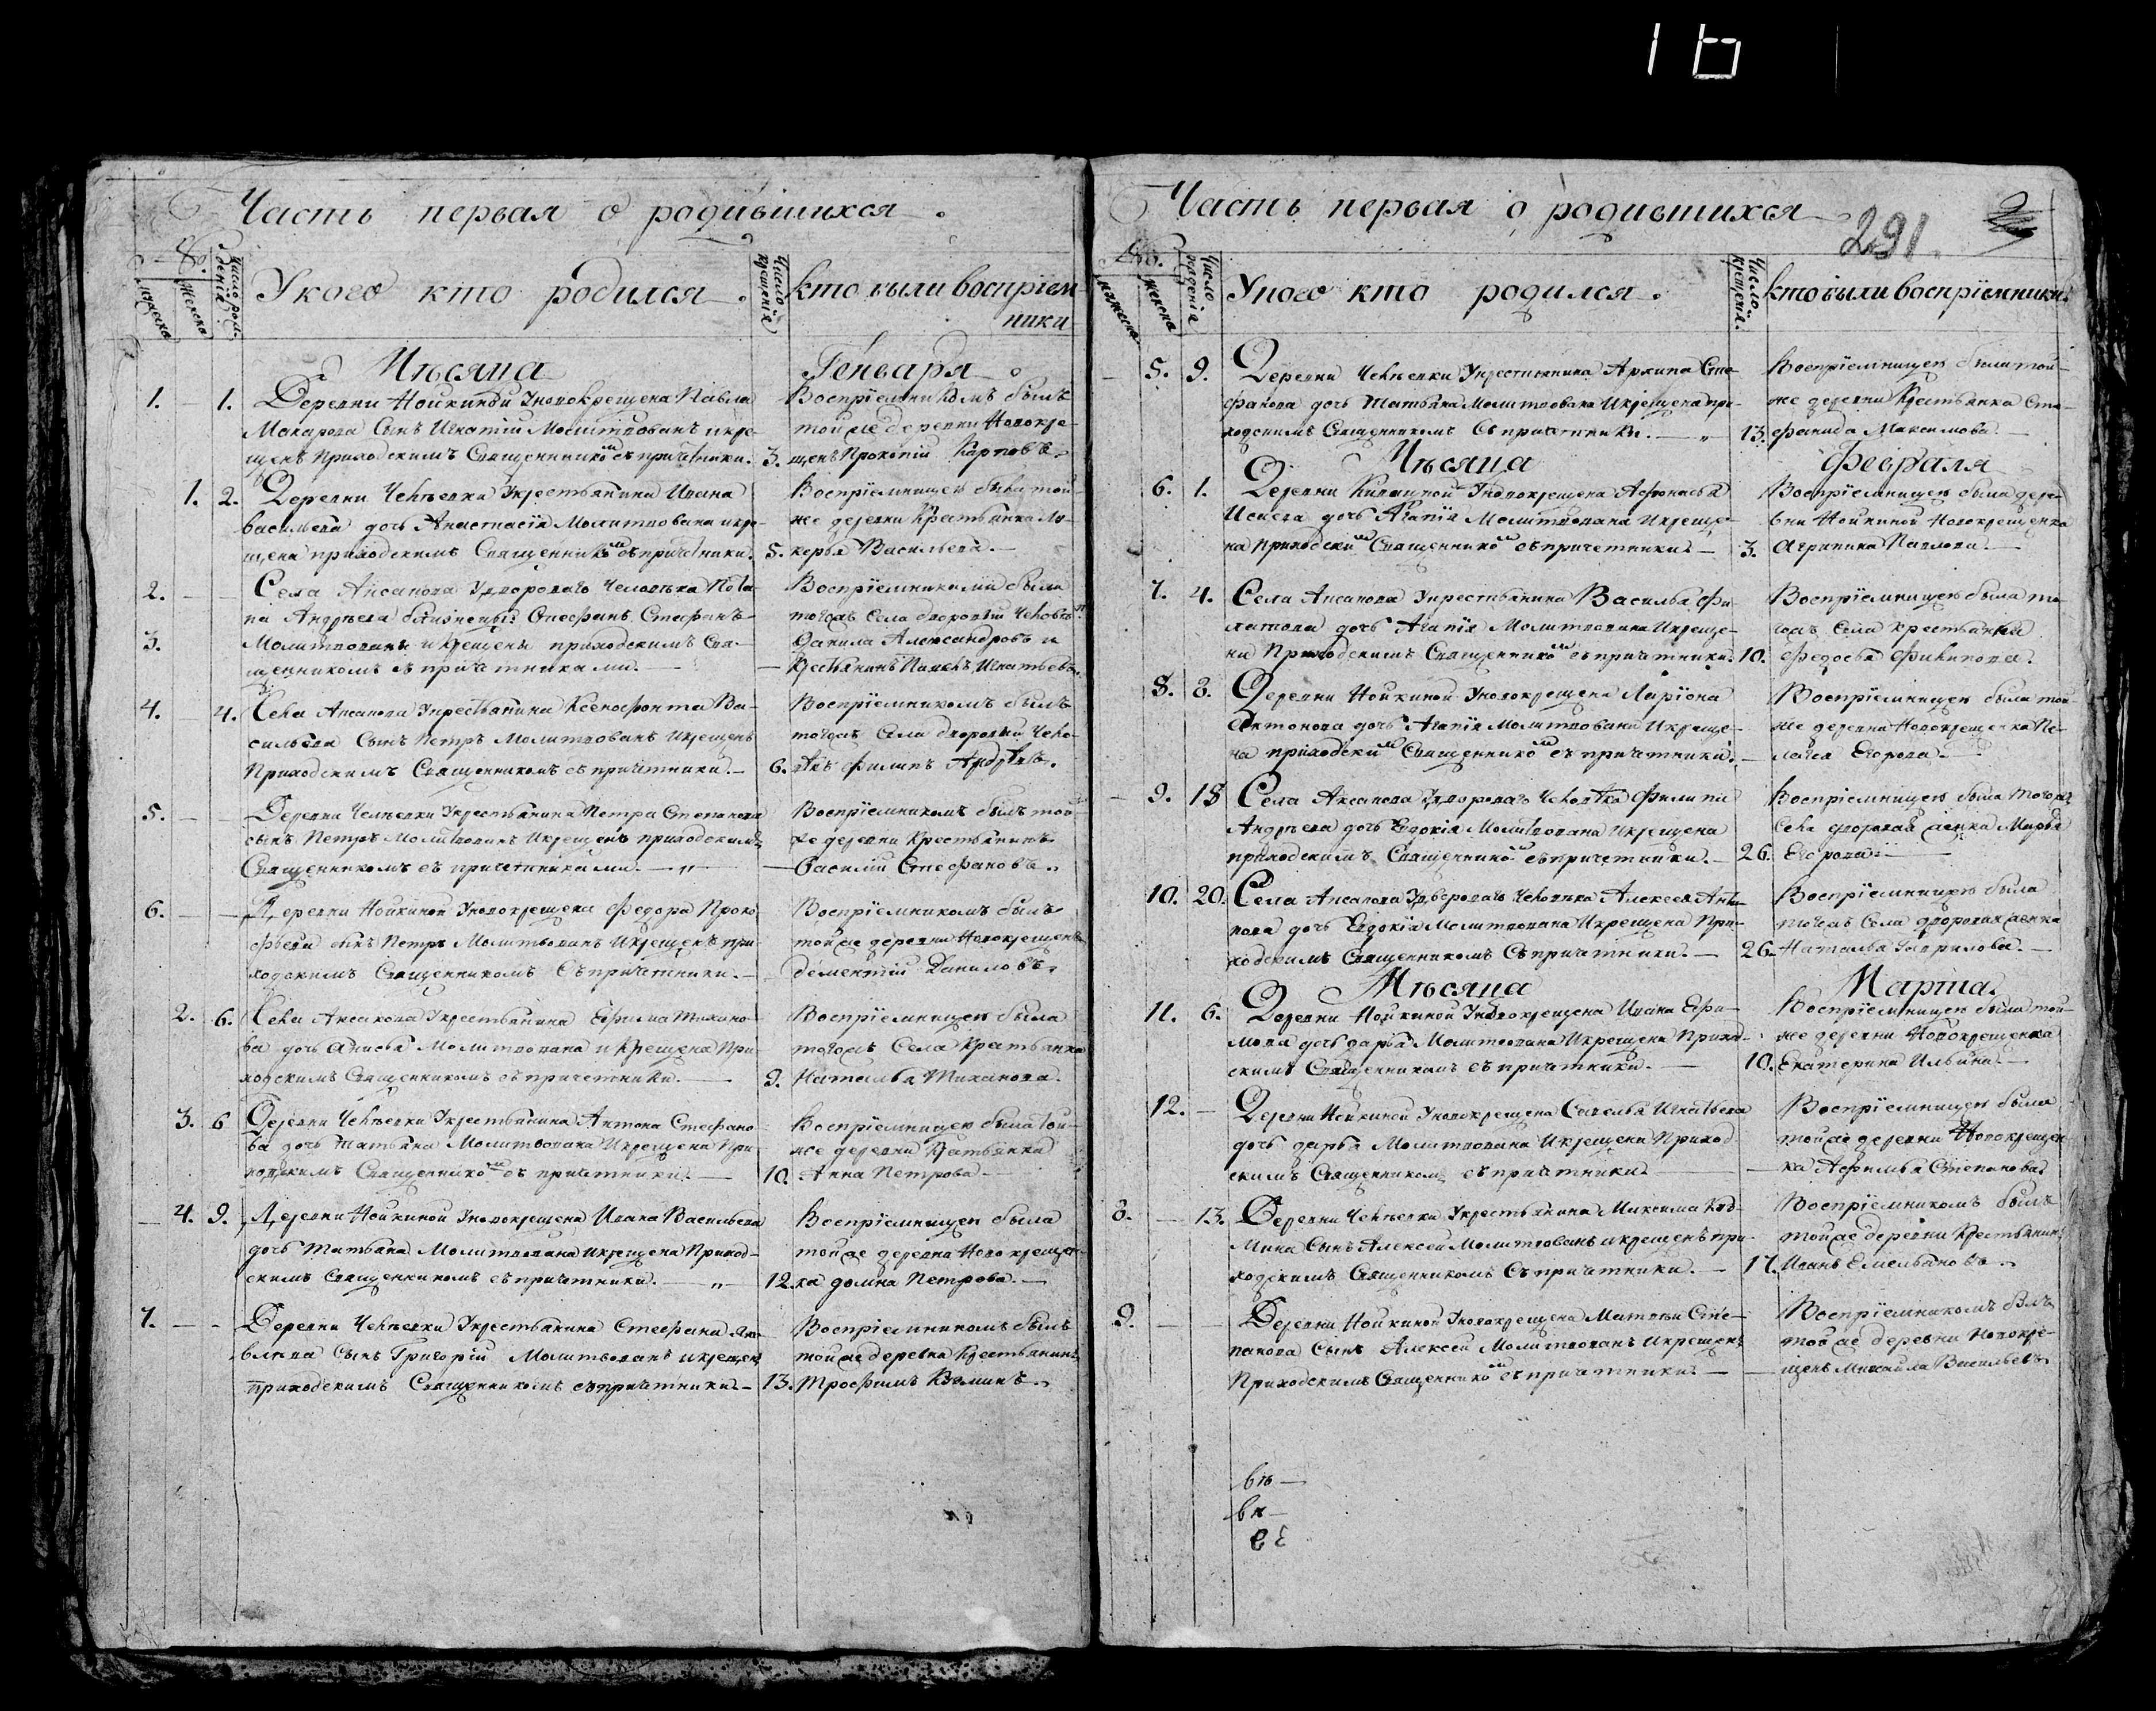 16
Часть первая о родившихся.
№.
мужеска
женска
число рождения
У кого кто родился.
Число крещения
кто были воспрiем
ники
Мѣсяца Генваря
1. 1. Деревни Нойкиной у новокрещена Павла
Макарова сынъ Игнатiй Молитвованъ и кре-
щенъ Приходскимъ Священникомъ съ причетники. 3.
Воспрiемникомъ былъ
тойже деревни Новокре-
щенъ Прокопiй Карповъ.
1. 2. Деревни у крестьянина Ивана
васильева дочь Анастасiя Молитвована и кре-
щена приходскимъ Священникомъ съ причетники. 5.
Воспрiемницею была той-
же деревни Крестьянка Лу-
керья Васильева.
2. Села Аксакова у двороваго человѣка Пота-
3. па Андрѣева близнецы Стефанъ, Стефанъ
Молитвованы и крещены приходскимъ Свя-
щенникомъ съ причетниками.
Воспрiемниками были
тогожъ Села дворовый человѣкъ
Данила Александровъ и
крестьянинъ Игнатьевъ.
4. 4. Села Аксакова у крестьянина Ксенофонта Ва-
сильева Сынъ Петръ Молитвованъ и крещенъ
Приходскимъ Священникомъ съ причетники. 6.
Воспрiемникомъ былъ
тогожъ Села дворовый чело-
вѣкъ Филипъ Андрѣевъ.
5. Деревни у крестьянина Петра Степанова
сынъ Петръ Молитвованъ и крещенъ приходскимъ
Священникомъ съ причетниками.
Воспрiемникомъ былъ той-
же деревни Крестьянинъ
Василiй Стефановъ.
6. Деревни Нойкиной у новокрещена Федора Проко-
фьева сынъ Петръ Молитвованъ и крещенъ при-
ходскимъ Священникомъ съ причетники.
Воспрiемникомъ былъ
тойже деревни Новокрещенъ
Дементiй Даниловъ.
2. 6. Села Аксакова у крестьянина Ефима Тихано-
ва дочь Анисья Молитвована и крещена При-
ходскимъ Священникомъ съ причетники. 9.
Воспрiемницею была
тогожъ Села Крестьянка
Наталья Тиханова.
3. 6 Деревни у крестьянина Антона Стефано-
ва дочь Татьяна Молитвована и крещена При-
ходскимъ Священникомъ съ причетники. 10.
Воспрiемницею была той-
же деревни Крестьянка
Анна Петрова
4. 9. Деревни Нойкиной у новокрещена Ивана Васильева
дочь Татьяна Молитвована и крещена Приход-
скимъ Священникомъ съ причетники. 12.
Воспрiемницею была
тойже деревни Новокрещен-
ка Домна Петрова.
7. Деревни у крестьянина Стефана Яко-
влева Сынъ Григорiй Молитвованъ и крещенъ
приходскимъ Священникомъ съ причетники. 13.
Воспрiемникомъ былъ
тойже деревни Крестьянинъ
Трофимъ
Часть первая о родившихся
291.
мужеска
женска
Число рожденiя
У кого кто родился.
Число крещенiя.
кто были воспрiемники.
5. 9. Деревни у крестьянина Архипа Сте-
фанова дочь Татьяна Молитвована и крещена при-
ходскимъ Священникомъ съ причетники. 13.
Воспрiемницею была той-
же деревни Крестьянка Сте-
фанида Максимова.
Мѣсяца Февраля
6. 1. Деревни у новокрещена Афонасья
Исаева дочь Агапiя Молитвована и креще-
на приходскимъ Священникомъ съ причетники. 3.
Воспрiемницею была дере-
вни Нойкиной Новокрещенка
Агрипина Павлова.
7. 4. Села Аксакова у крестьянина Василья Фи-
латова дочь Агапiя Молитвована и креще-
на Приходскимъ Священникомъ съ причетники. 10.
Воспрiемницею была то-
гожъ Села крестьянка
Федосья Филипова.
8. 8. Деревни Нойкиной у новокрещена Ларiона
Антонова дочь Агапiя Молитвована и креще-
на приходскимъ Священникомъ съ причетники.
Воспрiемницею была той-
же деревни Новокрещенка Пе-
лагея Егорова.
9. 18 Села Аксакова у двороваго человѣка Филипа
Андрѣева дочь Евдокiя Молитвована и крещена
приходскимъ Священникомъ съ причетники. 26.
Воспрiемницею была тогожъ
Села дворовая женка Марья
Егорова.
10. 20. Села Аксакова у двороваго человѣка Алексея Анти-
пова дочь Евдокiя Молитвована и крещена При-
ходскимъ Священникомъ съ причетники. 26.
Воспрiемницею была
тогожъ Села дворовая женка
Наталья Гаврилова.
Мѣсяца Марта.
11. 6. Деревни Нойкиной у новокрещена Ивана Ефи-
мова дочь Дарья Молитвована и крещена Приход-
скимъ Священникомъ съ причетники. 10.
Воспрiемницею была той-
же деревни Новокрещенка
Екатерина Ильина.
12. Деревни Нойкиной у новокрещена Савелья Игнатьева
дочь Дарья Молитвована и крещена Приход-
скимъ Священникомъ съ причетники.
Воспрiемницею была
тойже деревни Новокрещен-
ка Афимья Степанова.
8. 13. Деревни у крестьянина Максима Коз-
мина Сынъ Алексей Молитвованъ и крещенъ при-
ходскимъ Священникомъ съ причетники. 17.
Воспрiемникомъ былъ
тойже деревни Крестьянинъ
Иванъ Емельяновъ.
9. Деревни Нойкиной у новокрещена Матвѣя Сте-
панова Сынъ Алексей Молитвованъ и крещенъ
Приходскимъ Священникомъ съ причетники.
Воспрiемникомъ былъ
тойже деревни Новокре-
щенъ Михайла Васильевъ.